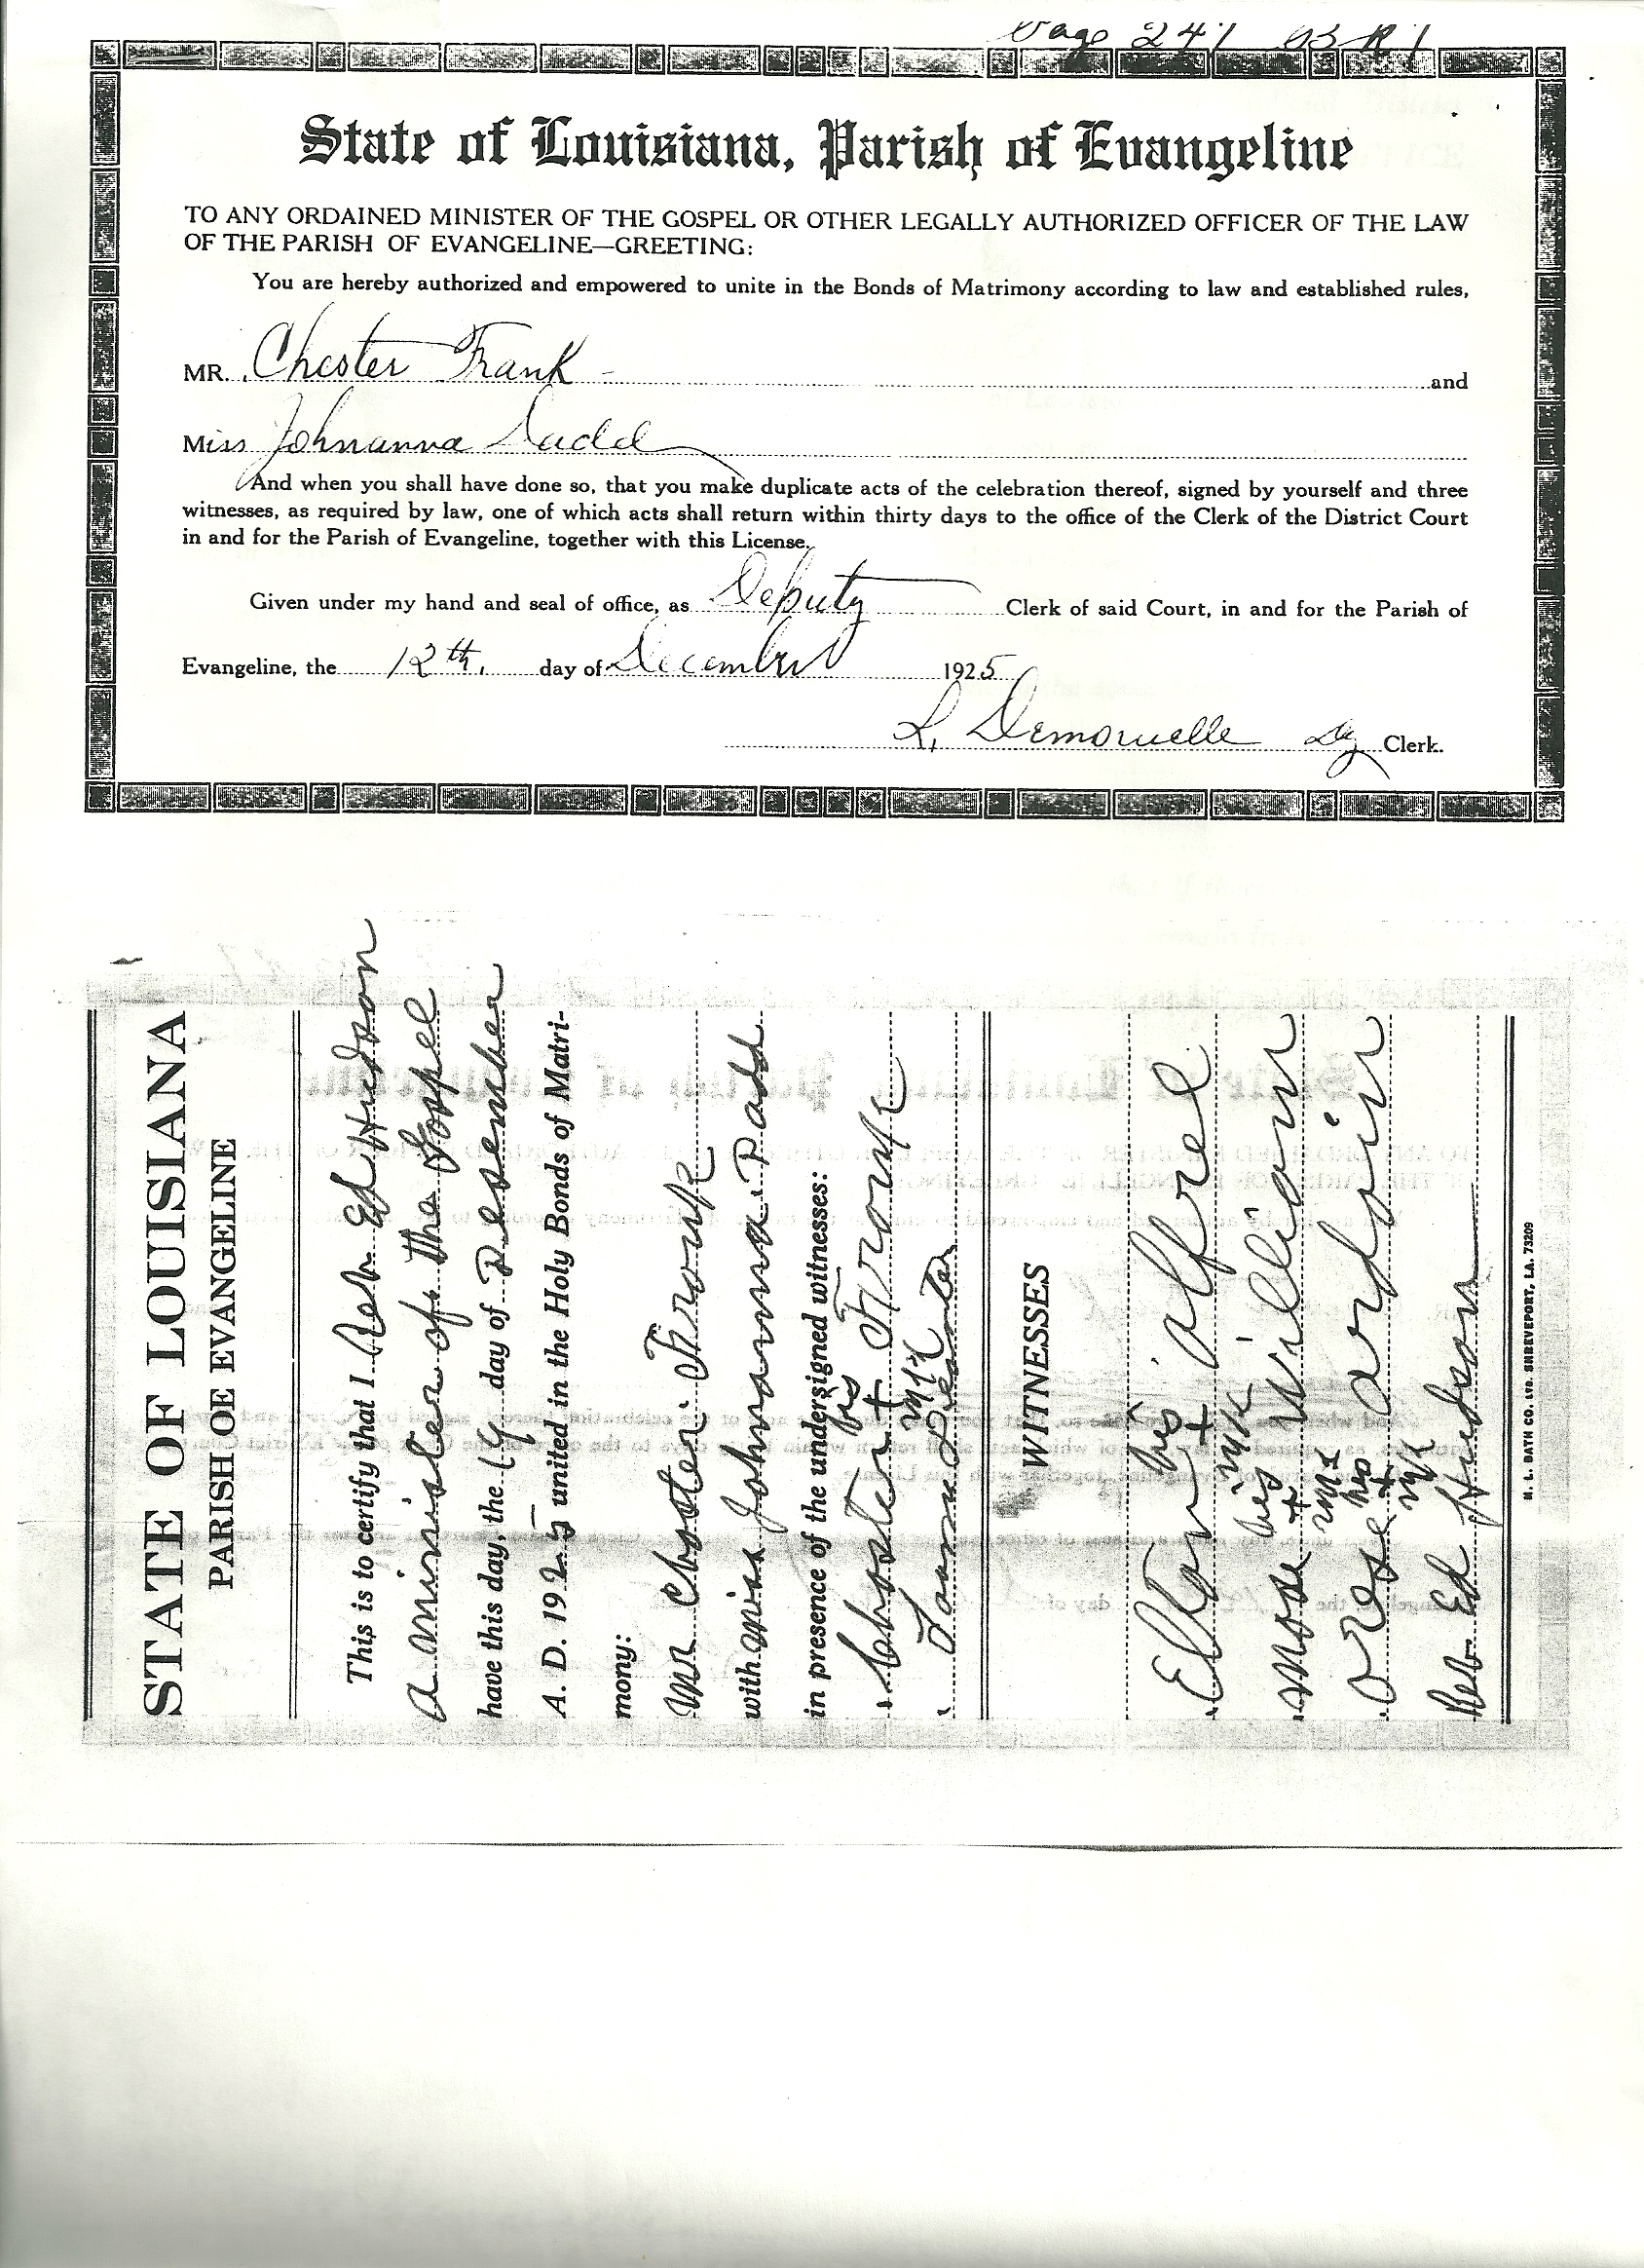 Page 241
State of Louisiana, Parish of Evangeline
TO ANY ORDAINED MINISTER OF THE GOSPEL OR OTHER LEGALLY AUTHORIZED OFFICER OF THE LAW
OF THE PARISH OF EVANGELINE—GREETING:
You are hereby authorized and empowered to unite in the Bonds of Matrimony according to law and established rules,
MR. Chester Frank and
Miss Johnanna Dadd
And when you shall have done so, that you make duplicate acts of the celebration thereof, signed by yourself and three
witnesses, as required by law, one of which acts shall return within thirty days to the office of the Clerk of the District Court
in and for the Parish of Evangeline, together with this License.
Given under my hand and seal of office, as Deputy Clerk of said Court, in and for the Parish of
Evangeline, the 12th. day of December 1925
L. Demoruelle Dy Clerk.
STATE OF LOUISIANA
PARISH OF EVANGELINE
This is to certify that I Rev. Ed Hudson
a minister of the Gospel
have this day, the 19 day of Desember
A. D. 1925 united in the Holy Bonds of Matri-
mony:
Mr Chester Frank
with Miss Johnanna Dadd
in presence of the undersigned witnesses:
his
Chester + Frank
mk
WITNESSES
his
Eltan + alfred
mk
his
Mose + William
mk
his
Orese + ardoin
mk
Rev Ed Hudson
M. L. BATH CO. LTD. SHREVEPORT, LA. 73209